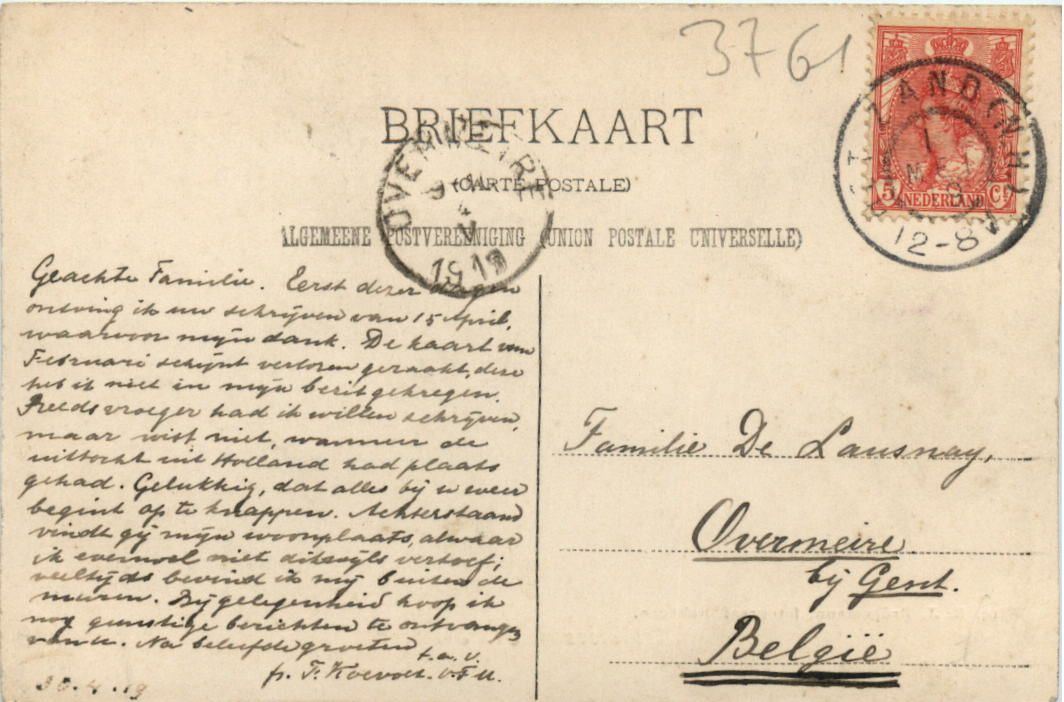 3761
BRIEFKAART
(CARTE POSTALE)
ALGEMEENE POSTVEREENIGING (UNION POSTALE UNIVERSELLE)
ZAND (N.H.)
12-8
5 Ct
NEDERLAND
OVERMEIRE
1919
Geachte Familie. Eerst dezer dagen
ontving ik uw schrijven van 15 April,
waarvoor mijn dank. De kaart van
Februari schijnt verloren geraakt, deze
heb ik niet in mijn bezit gekregen.
Reeds vroeger had ik willen schrijven,
maar wist niet, wanneer de
uittocht uit Holland had plaats
gehad. Gelukkig, dat alles bij u weer
begint op te knappen. Achterstaand
vindt gij mijn woonplaats, alwaar
ik evenwel niet dikwijls vertoef;
veeltijds bevind ik mij buiten de
muren. Bij gelegenheid hoop ik
nog gunstige berichten te ontvangen
van u. Na beleefde groeten
t.a.v.
fr. F. Koevoet.
30.4.19
Familie De Lausnay,
Overmeire
bij Gent.
België